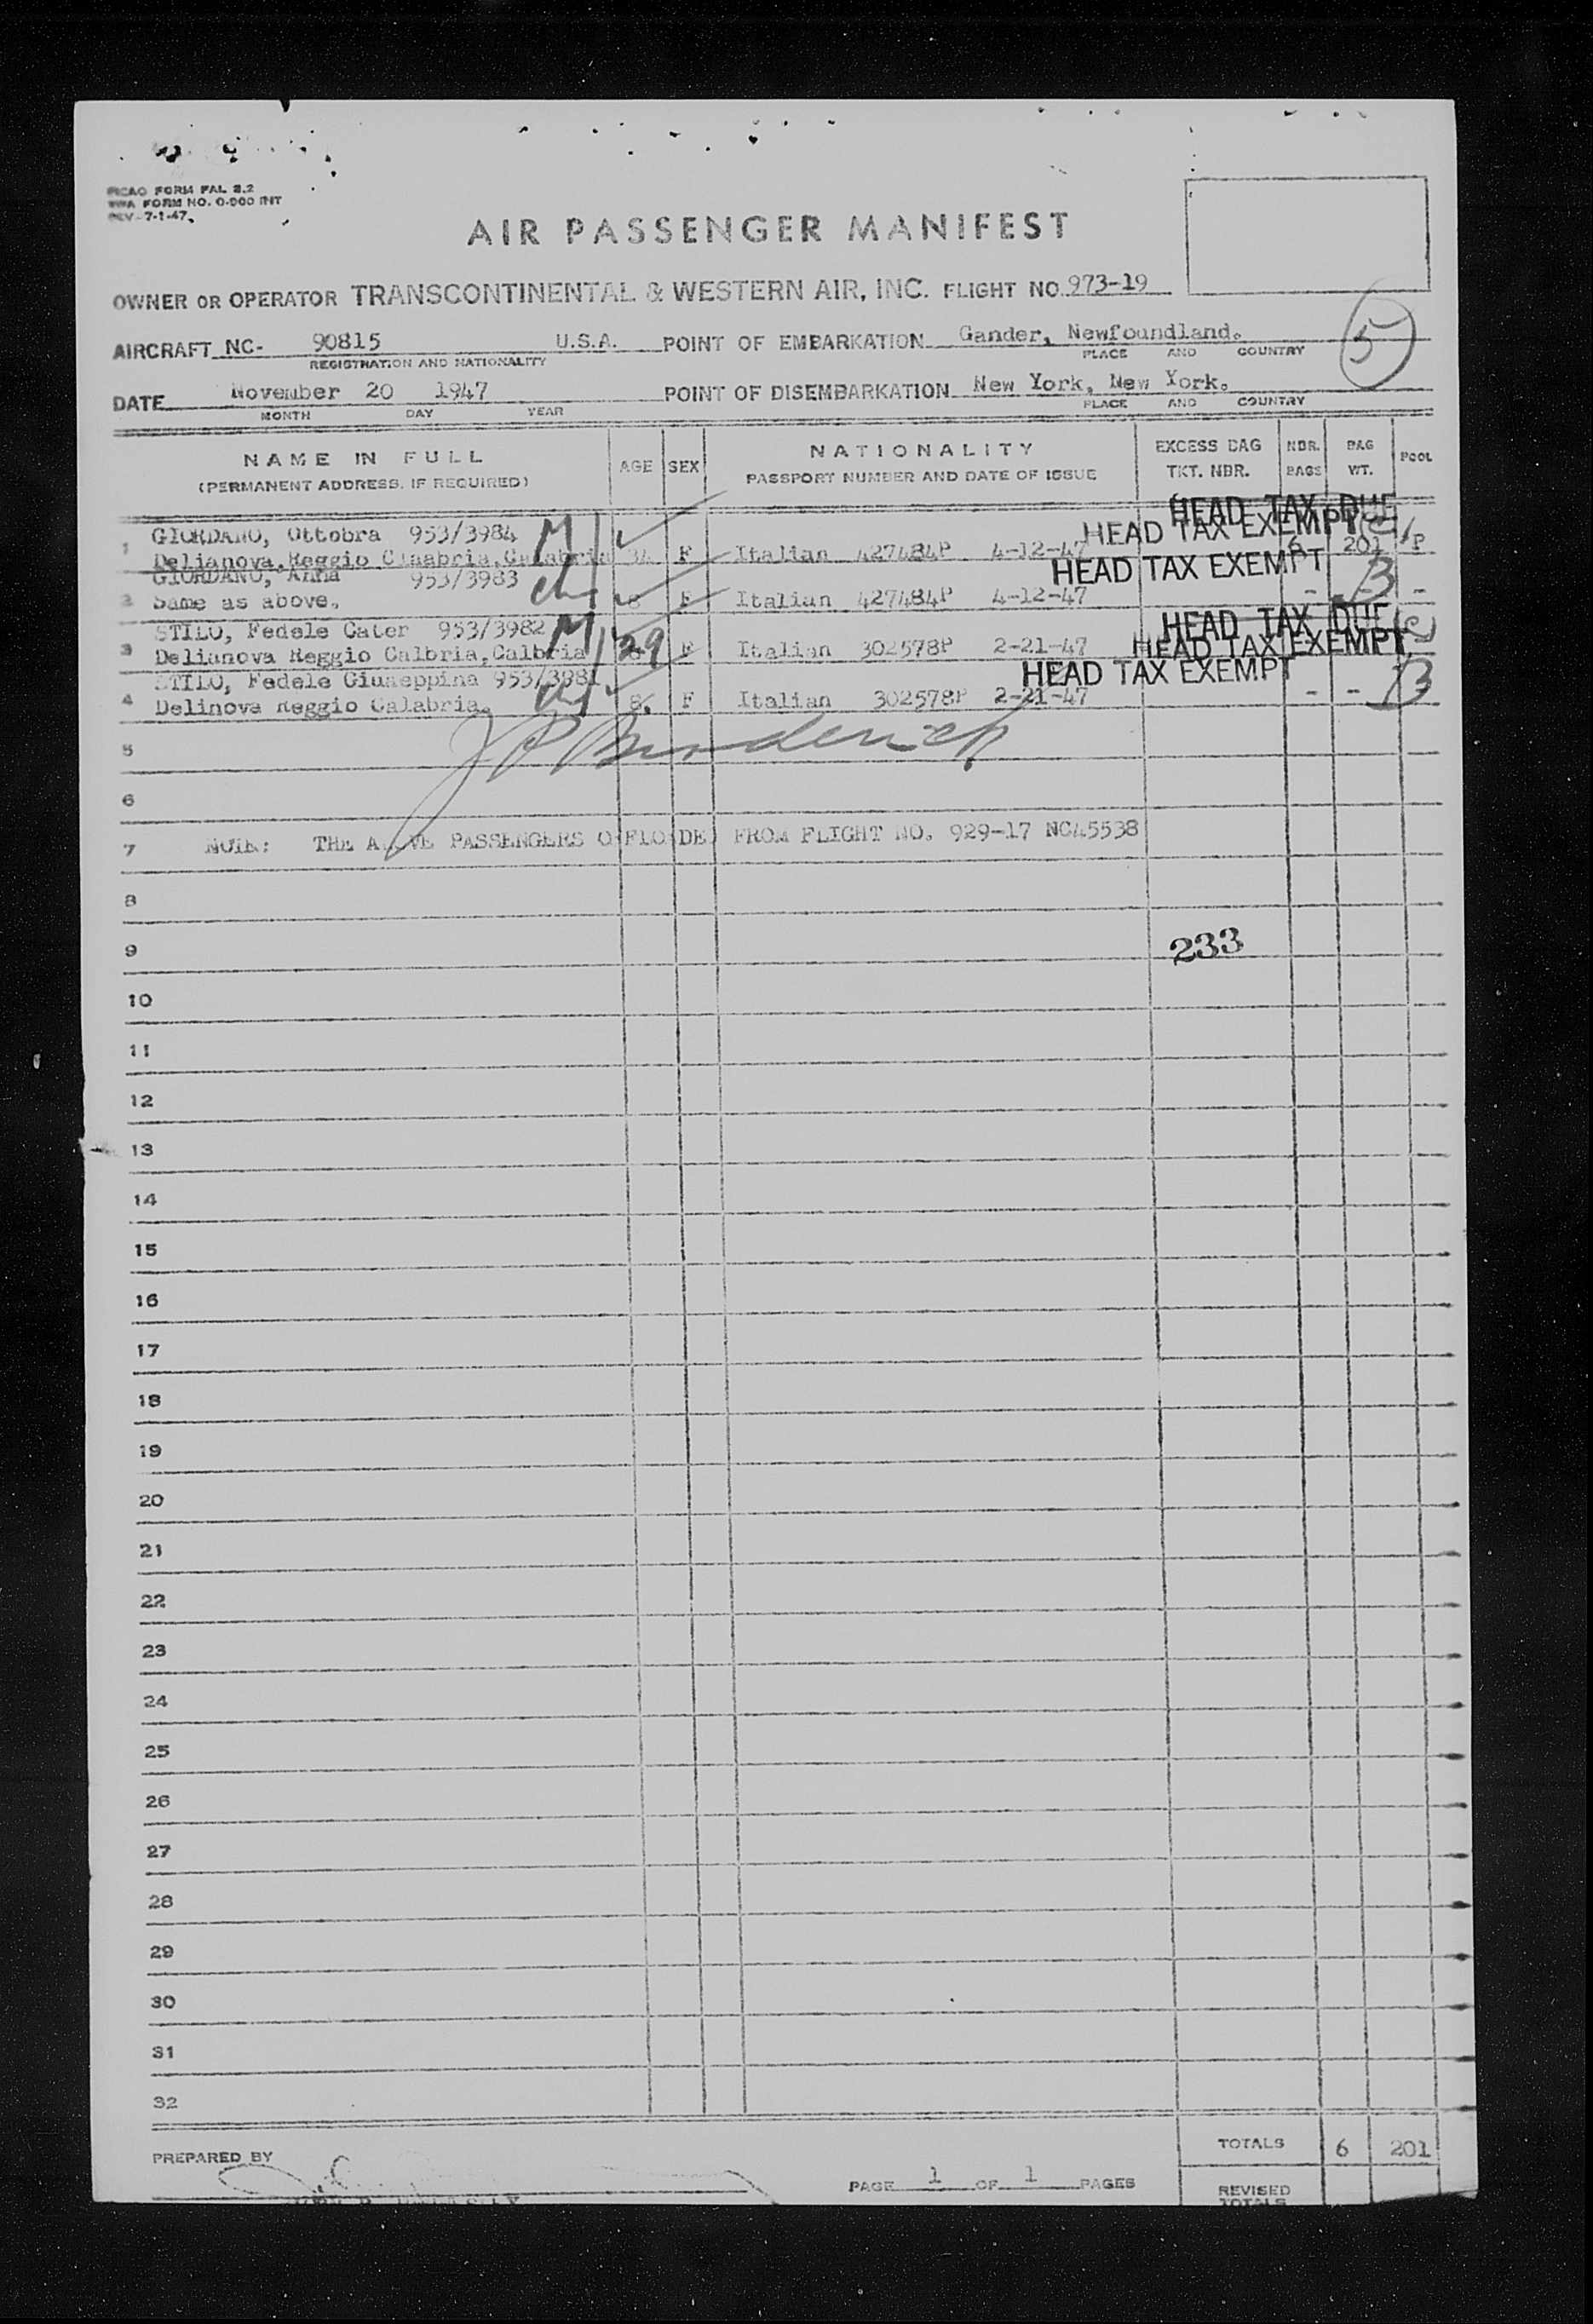 PICAO FORM FAL 2.2
TWA FORM NO. 0-900 INT
REV-7-1-47
AIR PASSENGER MANIFEST
OWNER OR OPERATOR TRANSCONTINENTAL & WESTERN AIR, INC. FLIGHT NO. 973-19
AIRCRAFT NC- 90815 U.S.A. POINT OF EMBARKATION Gander, Newfoundland.
REGISTRATION AND NATIONALITY PLACE AND COUNTRY
5
DATE November 20 1947 POINT OF DISEMBARKATION New York, New York.
MONTH DAY YEAR PLACE AND COUNTRY
NAME IN FULL AGE SEX NATIONALITY EXCESS BAG NBR. BAG POOL
(PERMANENT ADDRESS, IF REQUIRED) PASSPORT NUMBER AND DATE OF ISSUE TKT. NBR. BAGS WT.
HEAD TAX DUE
GIORDANO, Ottobra 953/3984 M HEAD TAX EXEMPT
1 Delianova, Reggio Claabria, Calabria 34 F Italian 427484P 4-12-47 6 201 P
GIORDANO, Anna 953/3983 HEAD TAX EXEMPT
2 Same as above. F Italian 427484P 4-12-47 - B -
STILO, Fedele Cater 953/3982 M HEAD TAX DUE
3 Delianova Reggio Calbria, Calbria 29 F Italian 302578P 2-21-47 HEAD TAX EXEMPT
STILO, Fedele Giuseppina 953/3981 HEAD TAX EXEMPT
4 Delinova Reggio Calabria. 8. F Italian 302578P 2-21-47 - - B
5
6
7 NOTE: THE ABOVE PASSENGERS OFFLOADED FROM FLIGHT NO. 929-17 NC45538
8
9 233
10
11
12
13
14
15
16
17
18
19
20
21
22
23
24
25
26
27
28
29
30
31
32
TOTALS 6 201
PREPARED BY
PAGE 1 OF 1 PAGES
REVISED
TOTALS